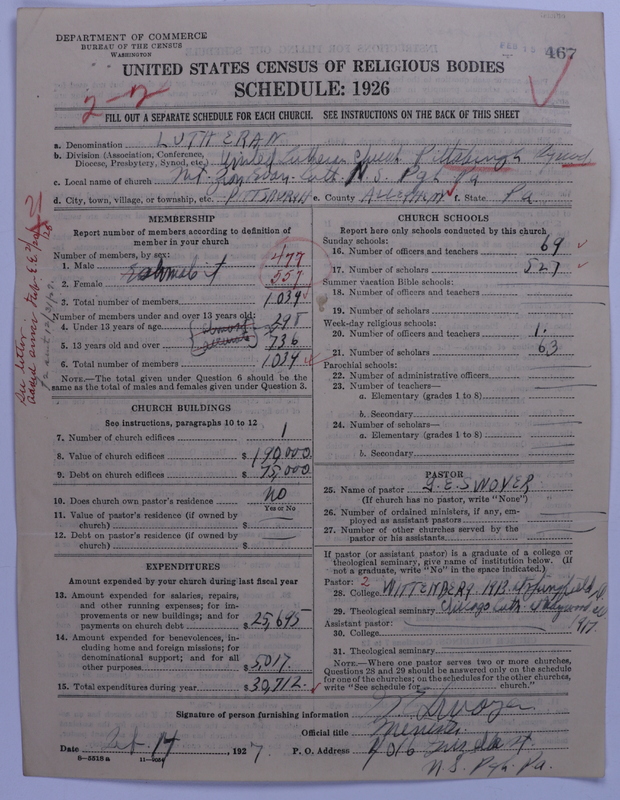 DEPARTMENT OF COMMERCE
BUREAU OF THE CENSUS
WASHINGTON
467
UNITED STATES CENSUS OF RELIGIOUS BODIES
SCHEDULE: 1926
FILL OUT A SEPARATE SCHEDULE FOR EACH CHURCH. SEE INSTRUCTIONS ON THE BACK OF THIS SHEET
a. Denomination LUTHERAN
b. Division (Association, Conference, Diocese, Presbytery, Synod, etc.) United Lutheran Church Pittsburgh Synod
c. Local name of church Mt. Zion Evan. Luth. N.S. Pgh Pa
d. City, town, village, or township, etc. PITTSBURGH e. County ALLEGHENY f. State Pa
MEMBERSHIP
Report number of members according to definition of member in your church
Number of members, by sex:
1. Male 477
Estimate
2. Female 557
3. Total number of members 1034
Number of members under and over 13 years old:
4. Under 13 years of age 298
5. 13 years old and over 736
6. Total number of members 1034
NOTE.—The total given under Question 6 should be the same as the total of males and females given under Question 3.
See letter
CHURCH BUILDINGS
See instructions, paragraphs 10 to 12
7. Number of church edifices 1
8. Value of church edifices $ 190,000
9. Debt on church edifices $ 75,000
10. Does church own pastor's residence no
Yes or No
11. Value of pastor's residence (if owned by church) $
12. Debt on pastor's residence (if owned by church) $
EXPENDITURES
Amount expended by your church during last fiscal year
13. Amount expended for salaries, repairs, and other running expenses; for improvements or new buildings; and for payments on church debt $ 25,695
14. Amount expended for benevolences, including home and foreign missions; for denominational support; and for all other purposes $ 5,017
15. Total expenditures during year $ 30,712
CHURCH SCHOOLS
Report here only schools conducted by this church
Sunday schools:
16. Number of officers and teachers 69
17. Number of scholars 527
Summer vacation Bible schools:
18. Number of officers and teachers
19. Number of scholars
Week-day religious schools:
20. Number of officers and teachers 1.
21. Number of scholars 63
Parochial schools:
22. Number of administrative officers
23. Number of teachers—
a. Elementary (grades 1 to 8)
b. Secondary
24. Number of scholars—
a. Elementary (grades 1 to 8)
b. Secondary
PASTOR
25. Name of pastor G.E. SWOYER
(If church has no pastor, write "None")
26. Number of ordained ministers, if any, employed as assistant pastors
27. Number of other churches served by the pastor or his assistants
If pastor (or assistant pastor) is a graduate of a college or theological seminary, give name of institution below. (If not a graduate, write "No" in the space indicated.)
Pastor: 2
28. College WITTENBERG 1913 Springfield O.
29. Theological seminary Chicago Luth. Maywood Ill 1917
Assistant pastor:
30. College
31. Theological seminary
NOTE.—Where one pastor serves two or more churches, Questions 28 and 29 should be answered only on the schedule for one of the churches; on the schedules for the other churches, write "See schedule for church."
Signature of person furnishing information Swoyer
Official title Minister
Date Feb. 14, 1927 P. O. Address
N.S. Pgh. Pa.
8—5518a 11—9054